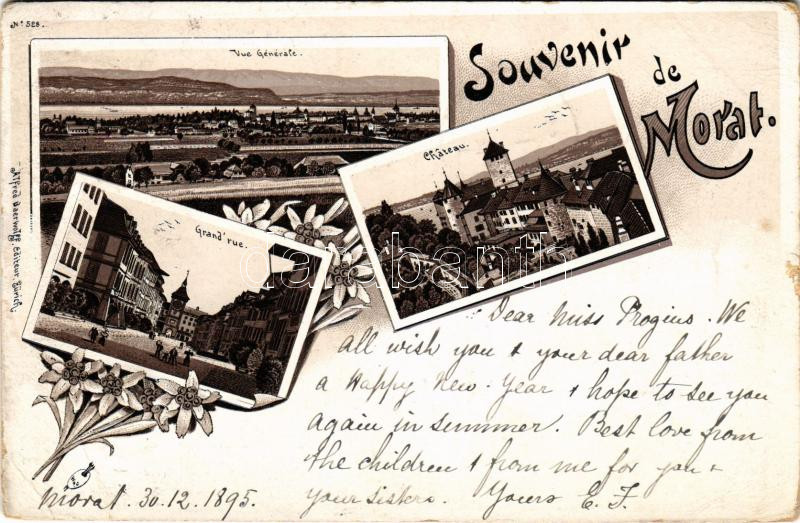 No 528.
Vue Générale.
Souvenir
de
Morat.
Château.
Grand' rue.
Alfred Baerwolff, Editeur Zürich.
darabanth
Dear Miss Progins. We
all wish you & your dear father
a Happy New-Year & hope to see you
again in summer. Best love from
the children & from me for you &
your sisters. Yours E. F.
Morat. 30.12.1895.